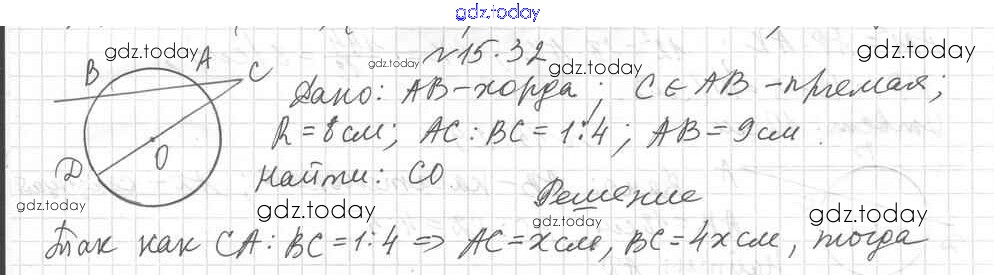 gdz.today
№15.32
Дано: AB-хорда; C∈AB-прямая;
R=8см; AC:BC=1:4; AB=9см.
Найти: CO
Решение
Так как CA:BC=1:4 ⇒ AC=xсм, BC=4xсм, тогда
B A C
O
D
gdz.today
gdz.today
gdz.today
gdz.today
gdz.today
gdz.today
gdz.today
gdz.today
gdz.today
gdz.today